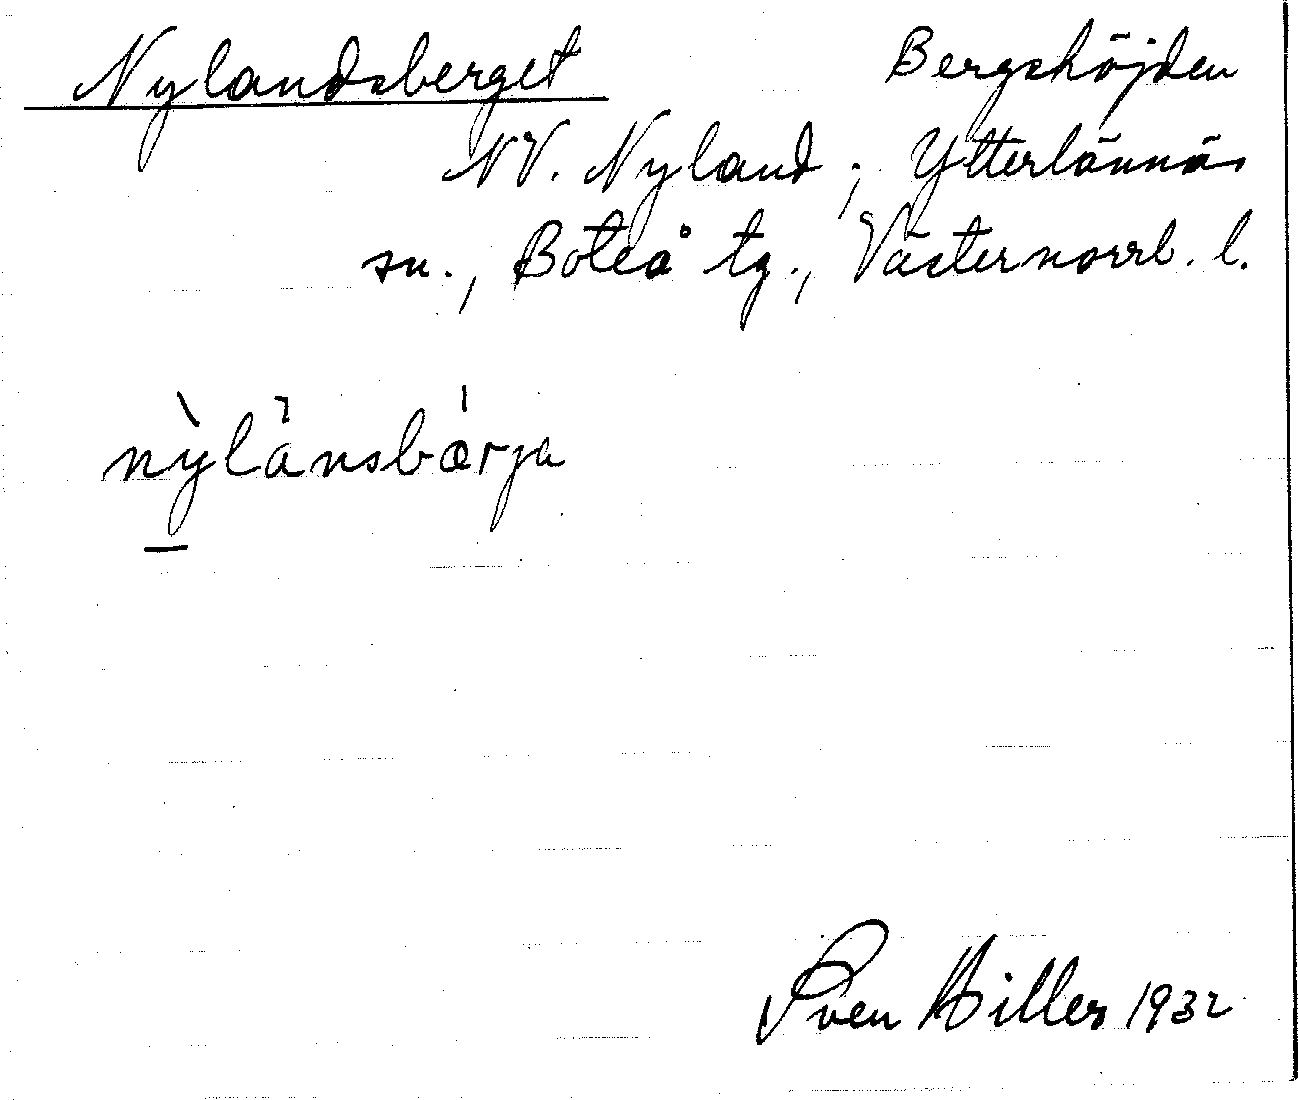 Nylandsberget Bergshöjden
NV. Nyland, Ytterlännäs
sn., Boteå tg., Västernorrl. l.
nylänsbærja
Sven Hiller 1932